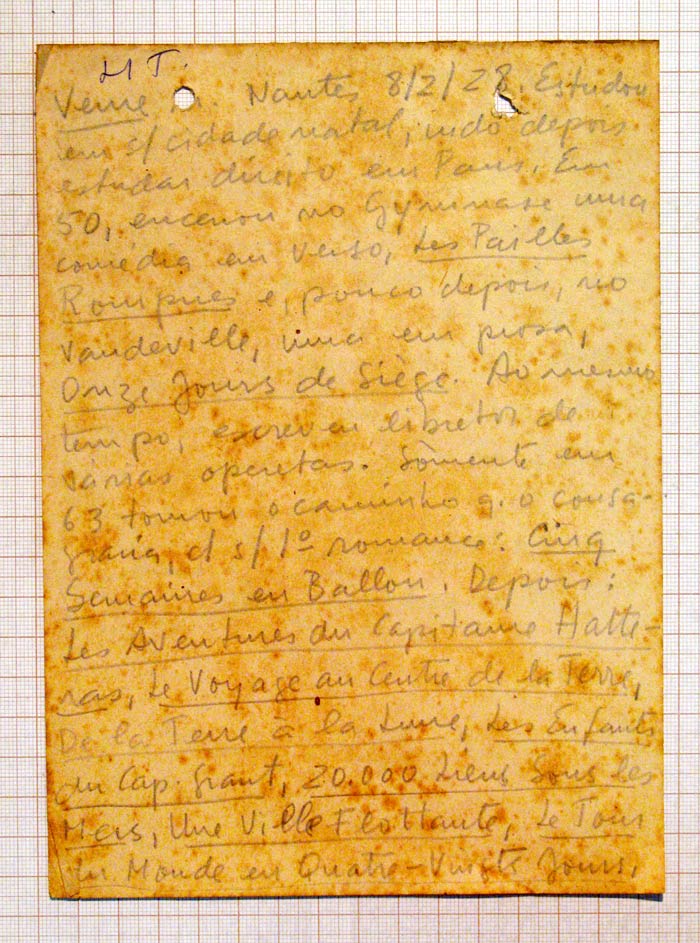 HT.
Verne n. Nantes 8/2/28. Estudou
em s/cidade natal, indo depois
estudar direito em Paris. Em
50, encenou no Gymnase uma
comédia em verso, Les Pailles
Rompues e, pouco depois, no
Vaudeville, uma em prosa,
Onze Jours de Siège. Ao mesmo
tempo, escreveu libretos de
várias operetas. Sòmente em
63 tomou o caminho q. o consa-
graria, c/ s/ 1º romance: Cinq
Semaines en Ballon. Depois:
Les Aventures du Capitaine Hatte-
ras, Le Voyage au Centre de la Terre,
De la Terre à la Lune, Les Enfants
du Cap. Grant, 20.000 Lieus Sous les
Mers, Une Ville Flottante, Le Tour
du Monde en Quatre-Vingts Jours,